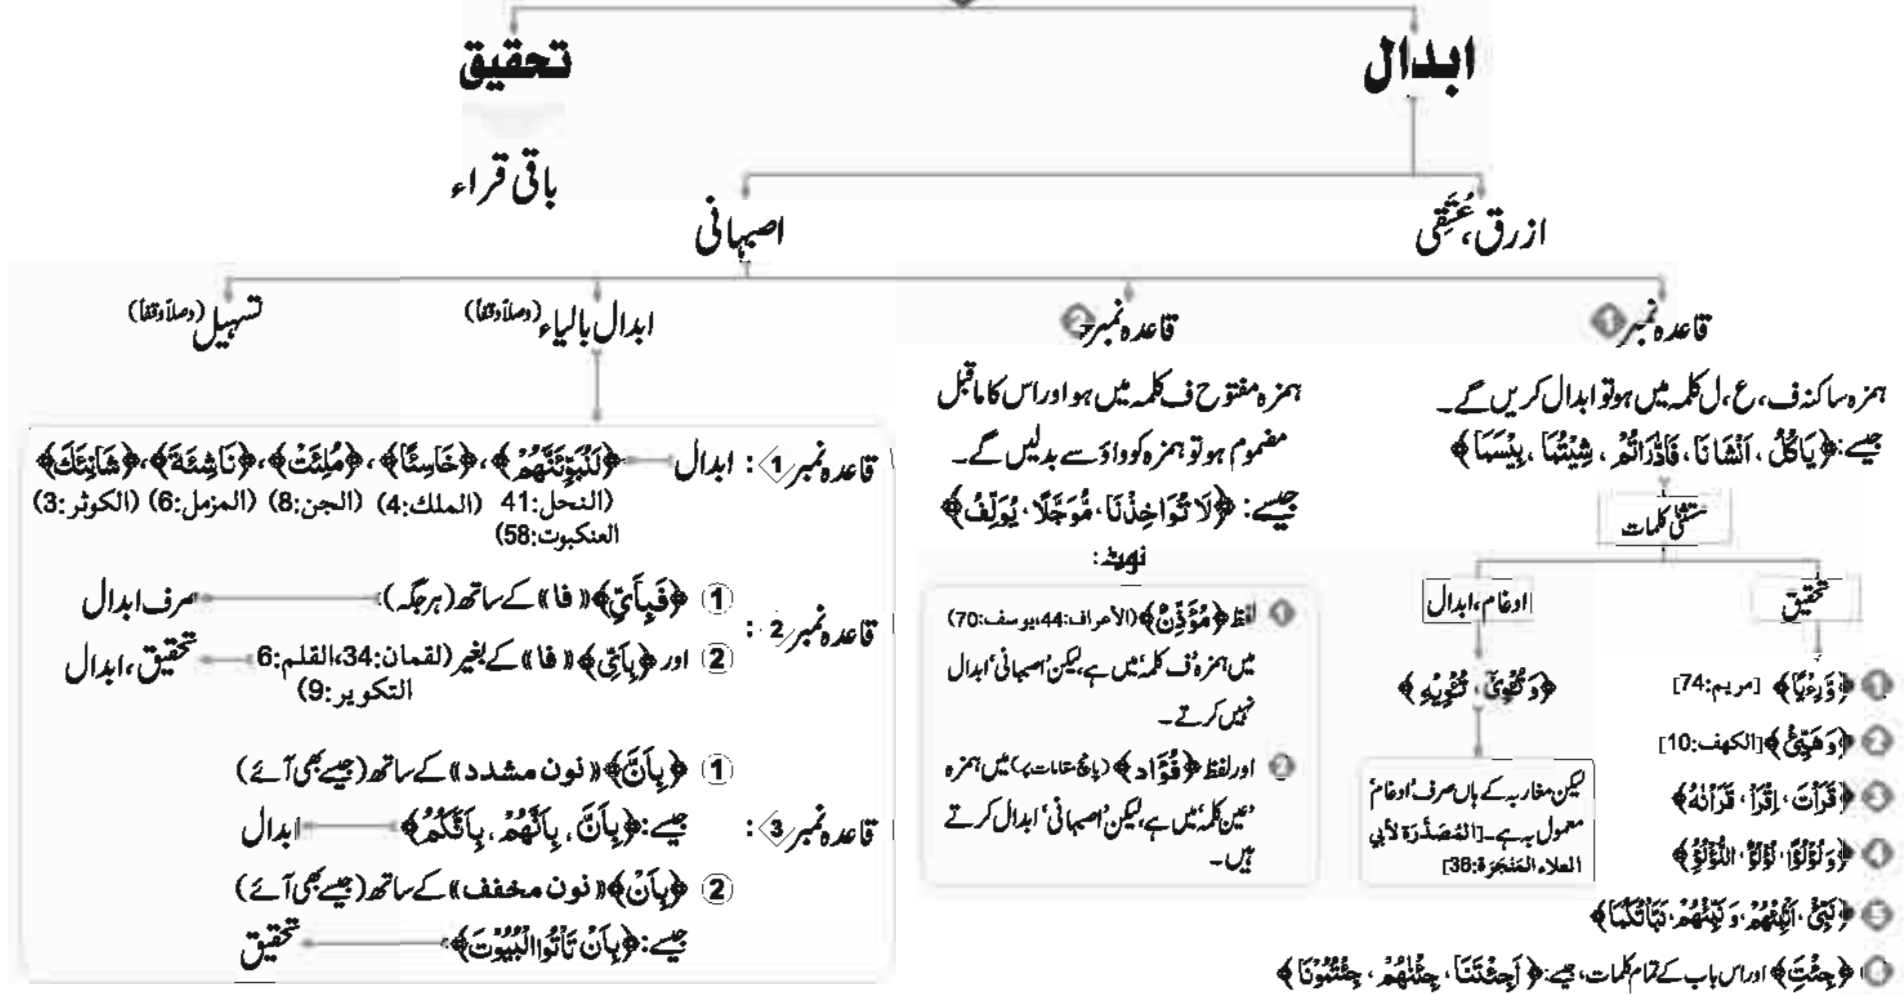 ابدال
تحقیق
باقی قراء
ازرق، عُتَقِی
اصبہانی
قاعدہ نمبر 1
ہمزہ ساکنہ ف، ع، ل کلمہ میں ہو تو ابدال کریں گے۔
جیسے: ﴿يَاكُلُ، اَنْشَانَا، فَادّٰرَاتُمْ، شِيْتُمَا، بِيْسَمَا﴾
مستثنیٰ کلمات
تحقیق
1 ﴿وَّرِءْيًا﴾ [مریم:74]
2 ﴿وَهَيِّئْ﴾ [الکهف:10]
3 ﴿قَرَأْتَ، اِقْرَأْ، قَرَأْنٰهُ﴾
4 ﴿وَلُؤْلُؤًا، لُؤْلُؤٌ، اللُّؤْلُؤِ﴾
5 ﴿نَبِّئْ، اَنْبِئْهُمْ، وَنَبِّئْهُمْ، نَبَّأْتُكُمَا﴾
6 ﴿جِئْتَ﴾ اور اس باب کے تمام کلمات، جیسے: ﴿اَجِئْتَنَا، جِئْنٰهُمْ، جِئْتُمُوْنَا﴾
ادغام، ابدال
﴿وَتُـْٔوِيْٓ، تُـْٔوِيْهِ﴾
لیکن مغاربہ کے ہاں صرف 'ادغام'
معمول بہ ہے۔ [المُصَدَّرَة لأبي
العلاء المَنْجَرَة:36]
قاعدہ نمبر 2
ہمزہ مفتوح ف کلمہ میں ہو اور اس کا ماقبل
مضموم ہو تو ہمزہ کو واؤ سے بدلیں گے۔
جیسے: ﴿لَا تُوَاخِذْنَا، مُّوَجَّلًا، يُوَلِّفُ﴾
نوٹ:
1 لفظ ﴿مُؤَذِّنٌ﴾ (الأعراف:44، یوسف:70)
میں ہمزہ 'ف کلمہ' میں ہے، لیکن 'اصبہانی' ابدال
نہیں کرتے۔
2 اور لفظ ﴿فُؤَاد﴾ (پانچ مقامات پر) میں ہمزہ
'عین کلمہ' میں ہے، لیکن 'اصبہانی' ابدال کرتے
ہیں۔
ابدال بالیاء (وصلاً وقفاً)
قاعدہ نمبر 1 : ابدال ﴿لَنُبَوِّئَنَّهُمْ﴾، ﴿خَاسِئًا﴾، ﴿مُلِئَتْ﴾، ﴿نَاشِئَةَ﴾، ﴿شَانِئَكَ﴾
(النحل:41 (الملك:4) (الجن:8) (المزمل:6) (الكوثر:3)
العنكبوت:58)
قاعدہ نمبر 2 :
① ﴿فَبِأَيِّ﴾ «فا» کے ساتھ (ہر جگہ) صرف ابدال
② اور ﴿بِأَيِّ﴾ «فا» کے بغیر (لقمان:34، القلم:6 تحقیق، ابدال
التكوير:9)
قاعدہ نمبر 3 :
① ﴿بِأَنَّ﴾ «نون مشدد» کے ساتھ (جیسے بھی آئے)
جیسے: ﴿بِأَنَّ، بِأَنَّهُمْ، بِأَنَّكُمْ﴾ ابدال
② ﴿بِأَنْ﴾ «نون مخفف» کے ساتھ (جیسے بھی آئے)
جیسے: ﴿بِأَنْ تَأْتُوا الْبُيُوْتَ﴾ تحقیق
تسہیل (وصلاً وقفاً)